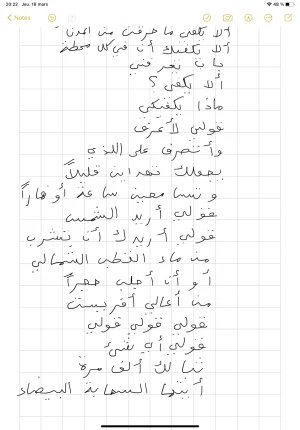 20:22 Jeu. 18 mars
48 %
Notes
ألا يكفي ما حرقت من المدن
ألا يكفيك أن في كل محطة
ألا يكفي؟
ماذا يكفيكي
قولي لأعرف
وأتصرف على اللذي
يجعلك تهدئين قليلاً
قولي أريد الشمس
قولي أريدك أن تشرب
من ماء القطب الشمالي
أو أن أجلب حجراً
من أعالي أفريست
قولي قولي قولي
قولي أي شيء
لك ألف مرة
أيتها السحابة البيضاء